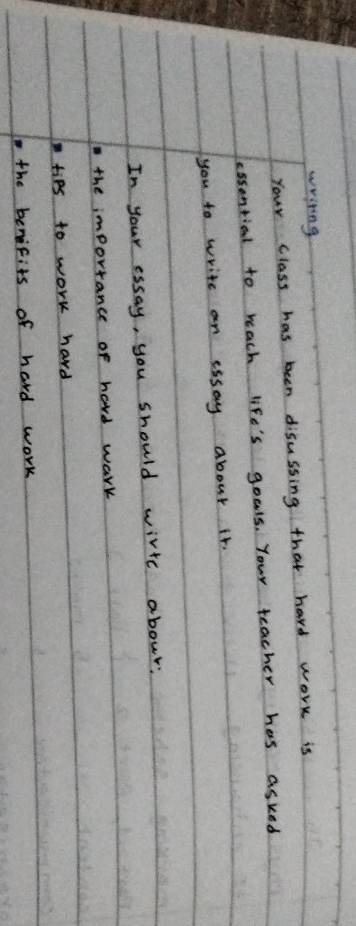 writing
Your class has been disussing that hard work is
essential to reach life's goals. Your teacher has asked
you to write an essay about it.
In your essay, you should wirte about:
the importance of hard work
tips to work hard
the benifits of hard work